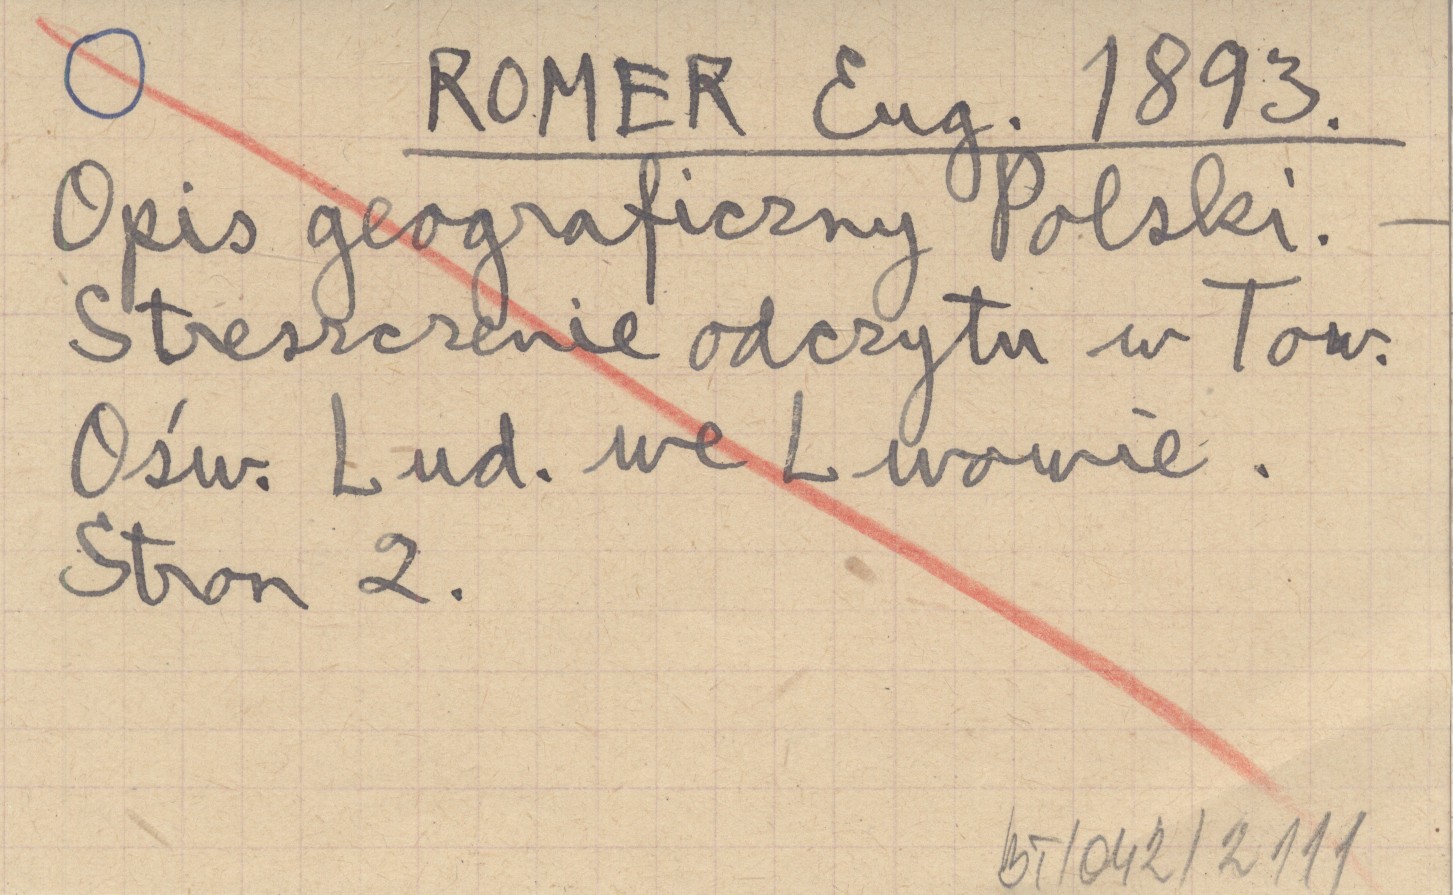 ROMER Eug. 1893.
Opis geograficzny Polski. —
Streszczenie odczytu w Tow.
Ośw. Lud. we Lwowie.
Stron 2.
BT/042/2111